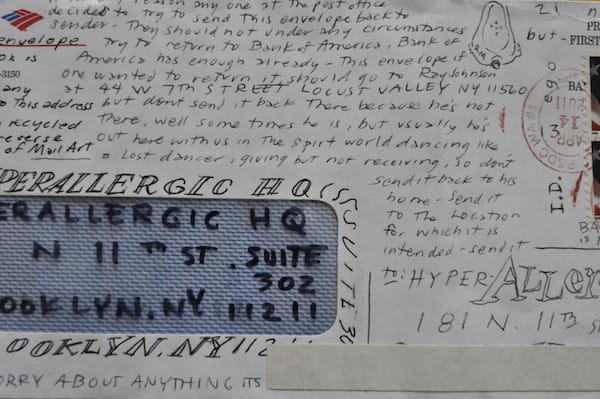 any one at The post office 21
decided to try to send This envelope back to
sender - They should not under any circumstances
envelope try to return to Bank of America, Bank of but - FIRST
is America has enough already - This envelope if
-3150 one wanted to return it should go to Ray Johnson
any at 44 W 7TH STREET LOCUST VALLEY NY 11560
this address but don't send it back There because he's not
recycled There, well some times he is, but usually he's
reverse out here with us in The spirit world dancing like
of Mail Art a Lost dancer, giving but not receiving, so don't
send it back to his
home - send it
to The Location
for which it is
intended - send it
to: HYPER-ALLER
181 N. 11TH
PERALLERGIC HQ
SUITE 30
ERALLERGIC HQ
N 11TH ST. SUITE
302
OOKLYN. NY 11211
OOKLYN. NY 112
ORRY ABOUT ANYTHING ITS
ego
I.D.
APR
14